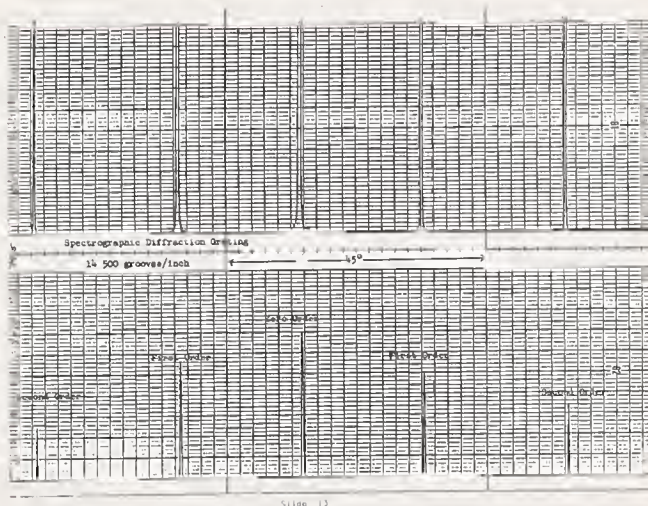 Spectrographic Diffraction Grating
14 500 grooves/inch
45°
Zero Order
First Order
First Order
Second Order
Second Order
Slide 13